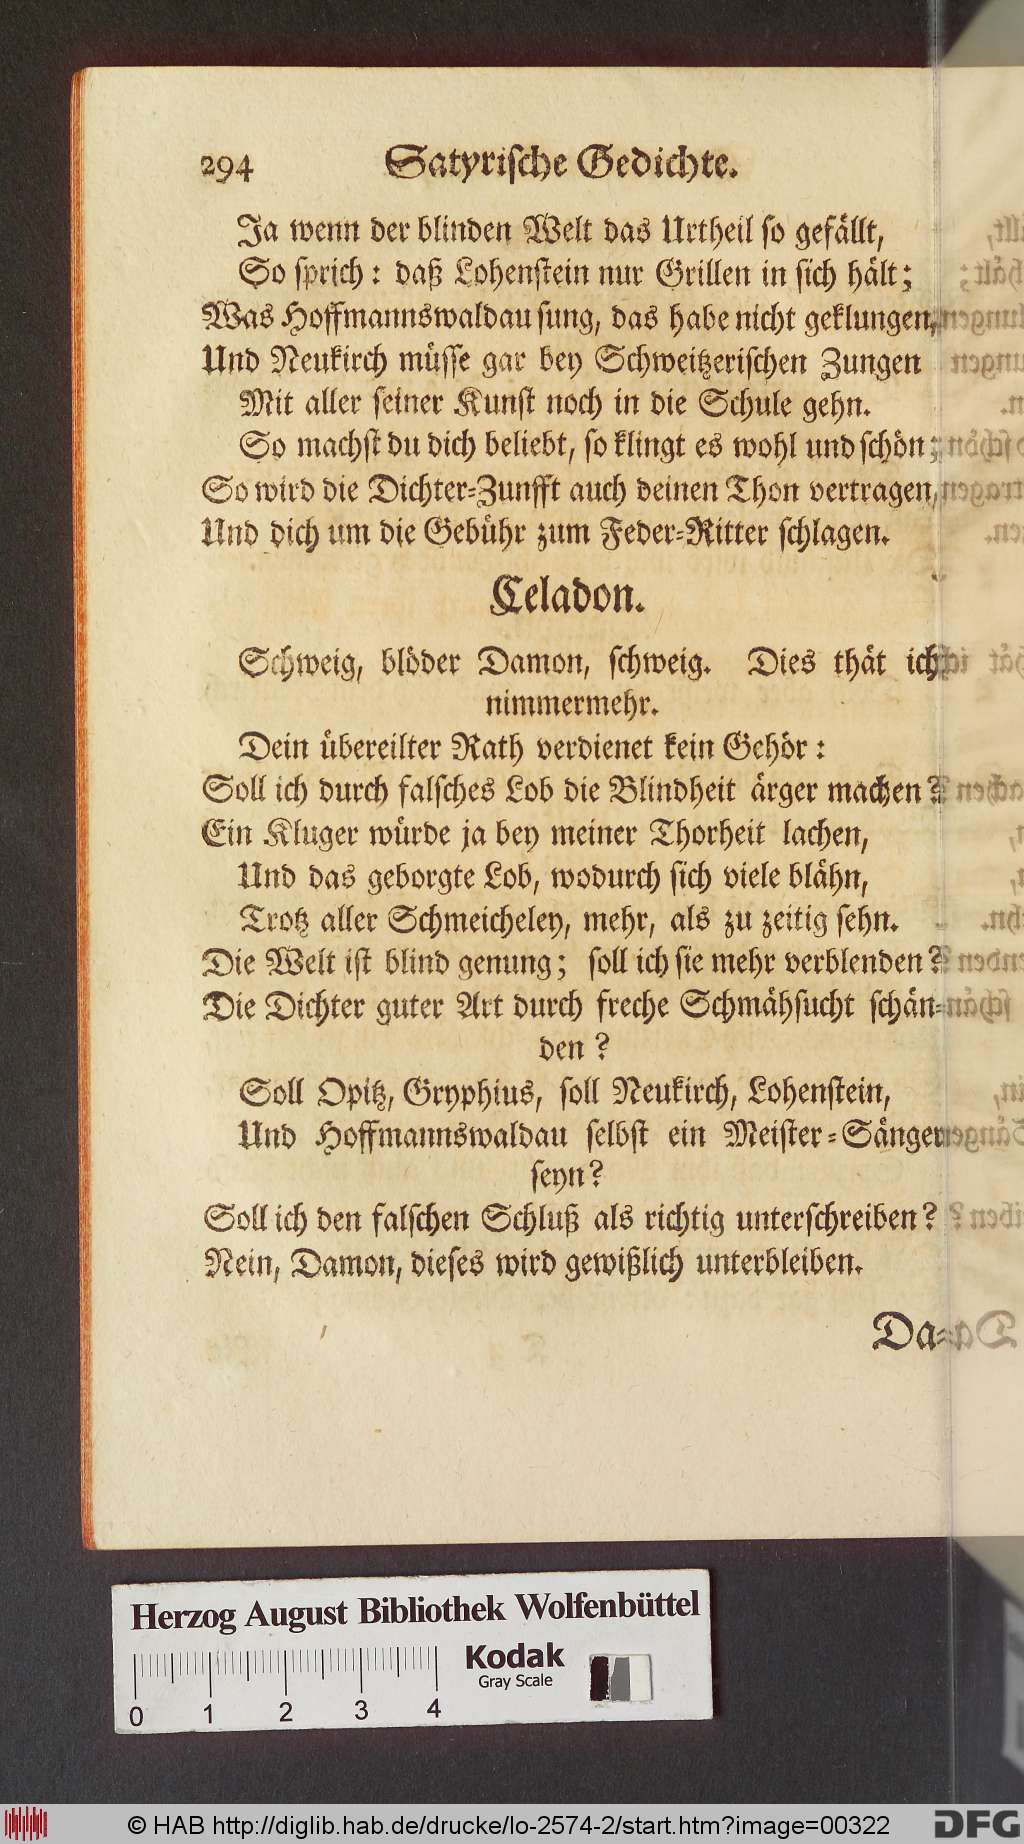 294 Satyrische Gedichte.
Ja wenn der blinden Welt das Urtheil so gefällt,
So sprich: daß Lohenstein nur Grillen in sich hält;
Was Hoffmannswaldau sung, das habe nicht geklungen,
Und Neukirch müsse gar bey Schweitzerischen Zungen
Mit aller seiner Kunst noch in die Schule gehn.
So machst du dich beliebt, so klingt es wohl und schön;
So wird die Dichter-Zunfft auch deinen Thon vertragen,
Und dich um die Gebühr zum Feder-Ritter schlagen.
Celadon.
Schweig, blöder Damon, schweig. Dies thät ich
nimmermehr.
Dein übereilter Rath verdienet kein Gehör:
Soll ich durch falsches Lob die Blindheit ärger machen?
Ein Kluger würde ja bey meiner Thorheit lachen,
Und das geborgte Lob, wodurch sich viele blähn,
Trotz aller Schmeicheley, mehr, als zu zeitig sehn.
Die Welt ist blind genung; soll ich sie mehr verblenden?
Die Dichter guter Art durch freche Schmähsucht schän-
den?
Soll Opitz, Gryphius, soll Neukirch, Lohenstein,
Und Hoffmannswaldau selbst ein Meister-Sänger
seyn?
Soll ich den falschen Schluß als richtig unterschreiben?
Nein, Damon, dieses wird gewißlich unterbleiben.
Da-
Herzog August Bibliothek Wolfenbüttel
Kodak
Gray Scale
0 1 2 3 4
© HAB http://diglib.hab.de/drucke/lo-2574-2/start.htm?image=00322
DFG